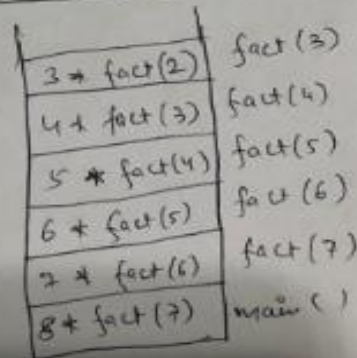 3 * fact(2) fact(3)
4 * fact(3) fact(4)
5 * fact(4) fact(5)
6 * fact(5) fact(6)
7 * fact(6) fact(7)
8 * fact(7) main()